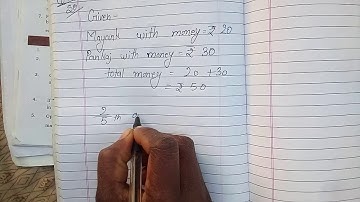 Given -
Mayank with money = ₹ 20
Pankaj with money = ₹ 30
total money = 20 + 30
= ₹ 50
2/5 th